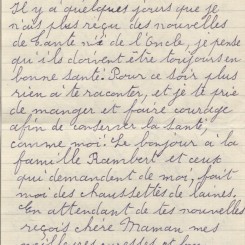 Il y a quelques jours que je
n'ais plus reçu des nouvelles
de tante n'é de l'oncle, je pense
qu'ils doivent être toujours en
bonne santé. Pour ce soir plus
rien à te raconter, et je te prie
de manger et faire courage
afin de conserver la santé,
comme moi. Le bonjour à la
famille Rambert et ceux
qui demandent de moi, fait
moi des chaussettes de laines.
En attendant de tes nouvelles
reçois chère Maman mes
meilleures caresses et